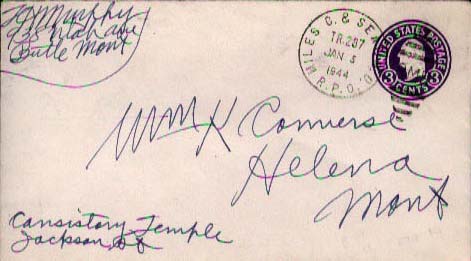 Murphy
Butte Mont
MILES C. & SEA
TR. 207
JAN 5
1944
R.P.O.
UNITED STATES POSTAGE
3 CENTS 3
Wm K Converse
Helena
Mont
Consistory Temple
Jackson St